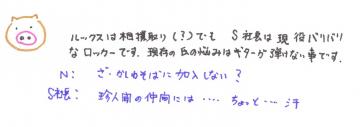 ルックスは相撲取り(?)でも S社長は現役バリバリ
なロッカーです。現在の氏の悩みはギターが弾けない事です。
N: ざ・かしわそばに加入しない?
S社長: 珍人間の仲間には‥‥ちょっと…汗